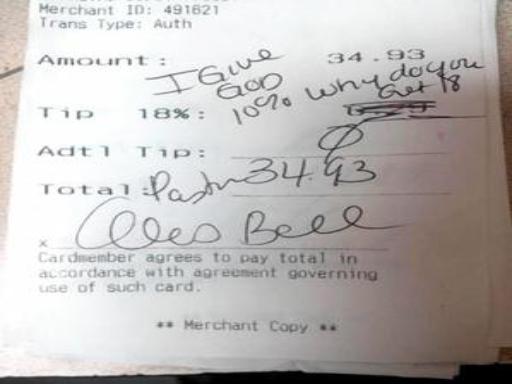 Merchant ID: 491621
Trans Type: Auth
Amount: 34.93
I Give
God
10% Why do you
Get 18
Tip 18%:
Adtl Tip: 0
Total: Pastor 34.93
x Bell
Cardmember agrees to pay total in
accordance with agreement governing
use of such card.
** Merchant Copy **